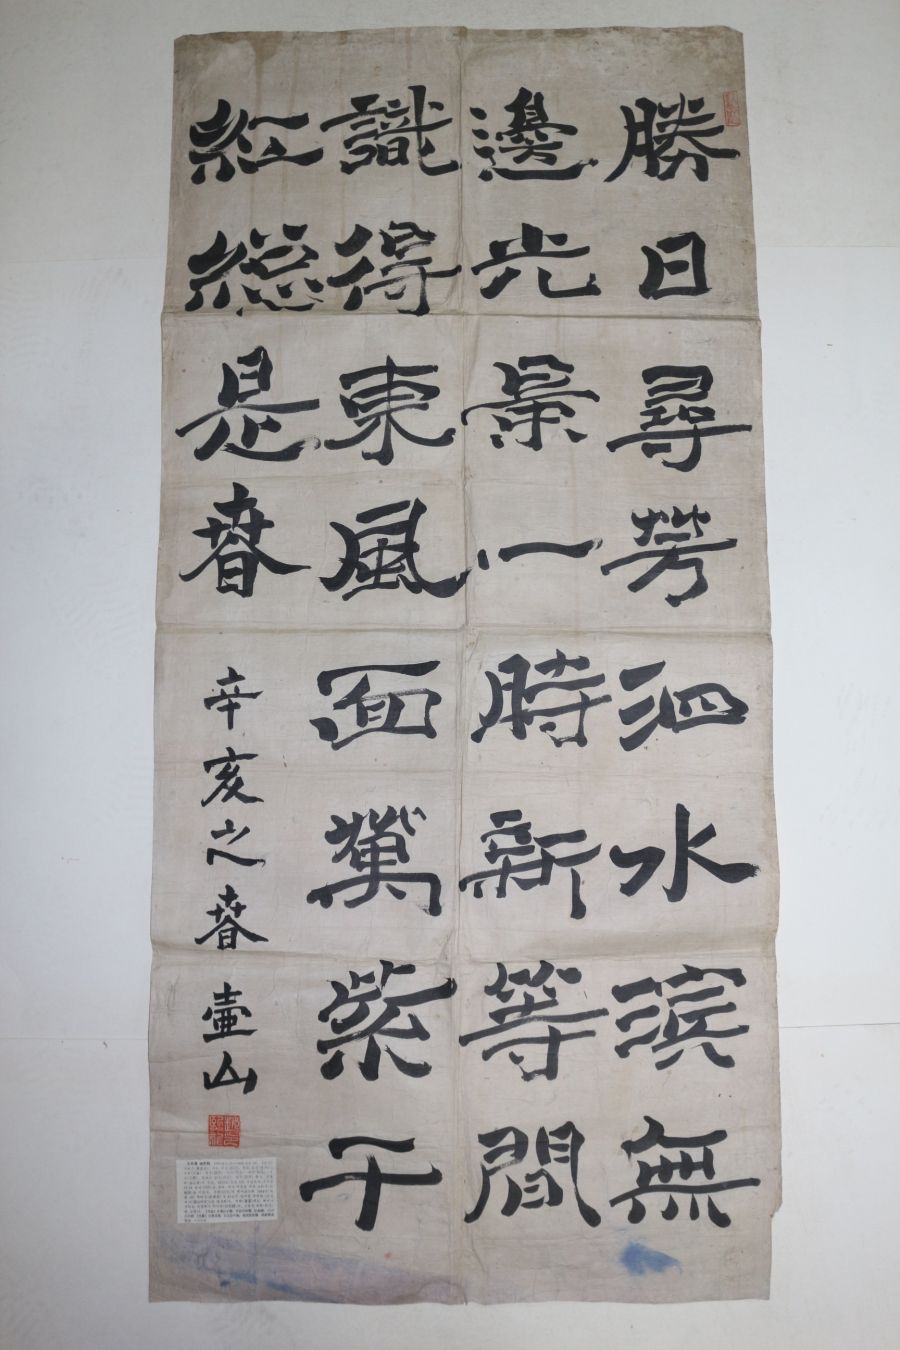 勝日尋芳泗水濱無
邊光景一時新等閒
識得東風面萬紫千
紅總是春
辛亥之春壺山